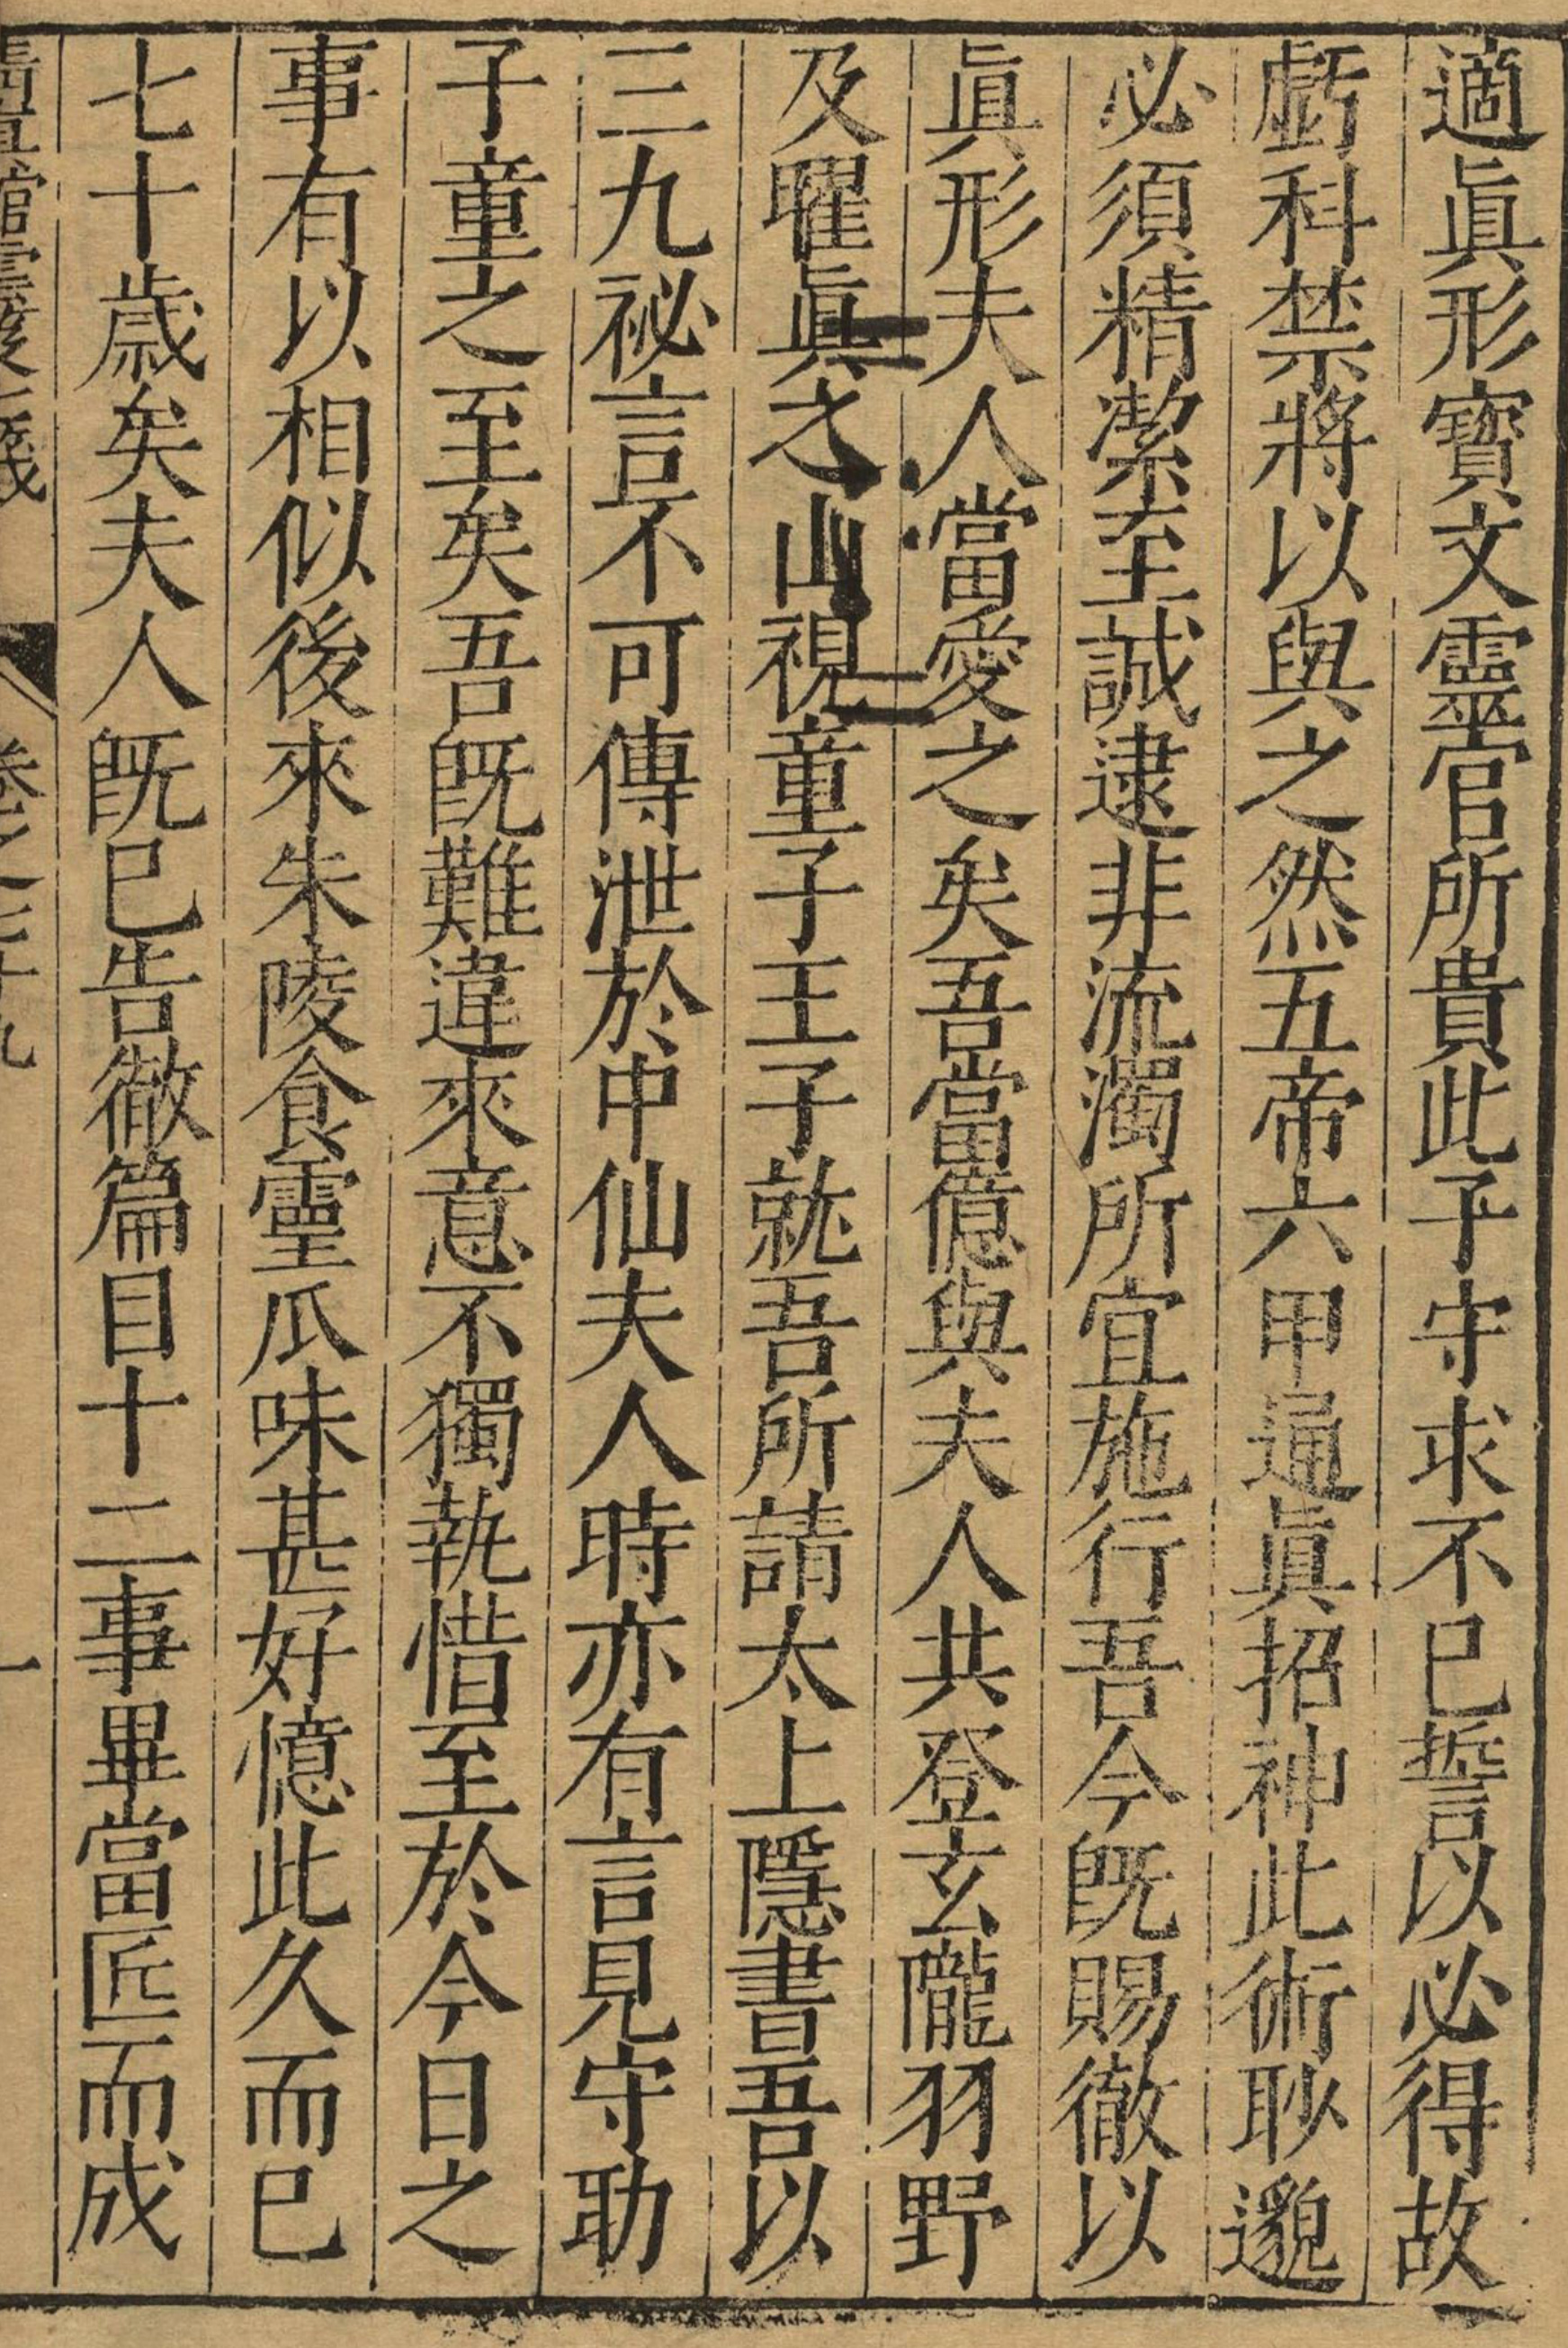 適眞形寳文靈官所貴此子守求不已誓以必得故
虧科禁將以與之然五帝六甲通眞招神此術眇邈
必須精潔至誠逮非流濁所宜施行吾今旣賜徹以
眞形夫人當愛之矣吾當億與夫人共登玄隴羽野
及曜眞之山視童子王子就吾所請太上隱書吾以
三九祕言不可傳泄於中仙夫人時亦有言見守助
子童之至矣吾旣難違來意不獨執惜至於今日之
事有以相似後來朱陵食靈瓜味甚好憶此久而已
七十歲矣夫人旣已告徹篇目十二事畢當匠而成
卷之三十九
一